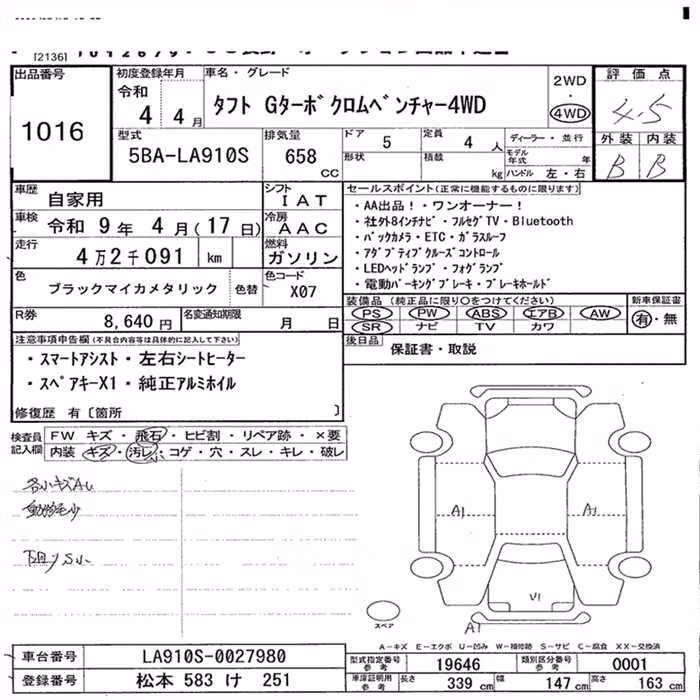 [2136]
出品番号
1016
初度登録年月
令和
4 4 月
車名・グレード
タフト Gターボクロムベンチャー4WD
2WD
・
4WD
評価点
4.5
外装 内装
B B
型式
5BA-LA910S
排気量
658 CC
ドア 5
形状
定員 4 人
積載 kg
ディーラー・並行
モデル年式 年
ハンドル 左・右
車歴 自家用
車検 令和 9年 4月(17日)
走行 4万2千091 km
色 ブラックマイカメタリック 色替
シフト IAT
冷房 AAC
燃料 ガソリン
色コード X07
R券 8,640円
名変通知期限 月 日
セールスポイント(正常に機能するものに限ります)
・AA出品!・ワンオーナー!
・社外8インチナビ・フルセグTV・Bluetooth
・バックカメラ・ETC・ガラスルーフ
・アダプティブクルーズコントロール
・LEDヘッドランプ・フォグランプ
・電動パーキングブレーキ・ブレーキホールド
装備品(純正品に限り○をつけてください)
PS PW ABS エアB AW
SR ナビ TV カワ
新車保証書
有・無
後日品 保証書・取説
注意事項申告欄(不具合内容等は具体的に記入して下さい)
・スマートアシスト・左右シートヒーター
・スペアキーX1・純正アルミホイル
修復歴 有〔箇所 〕
検査員記入欄
FW キズ・飛石・ヒビ割・リペア跡・×要
内装 キズ・汚レ・コゲ・穴・スレ・キレ・破レ
各小キズAU
動物毛少
下回りS小
A1
A1
U1
A1
スペア
A-キズ E-エクボ U-凹み W-補修跡 S-サビ C-腐食 XX-交換済
車台番号 LA910S-0027980
登録番号 松本 583 け 251
型式指定番号 参考 19646
類別区分番号 参考 0001
車庫証明用 参考 長さ 339 cm 幅 147 cm 高さ 163 cm